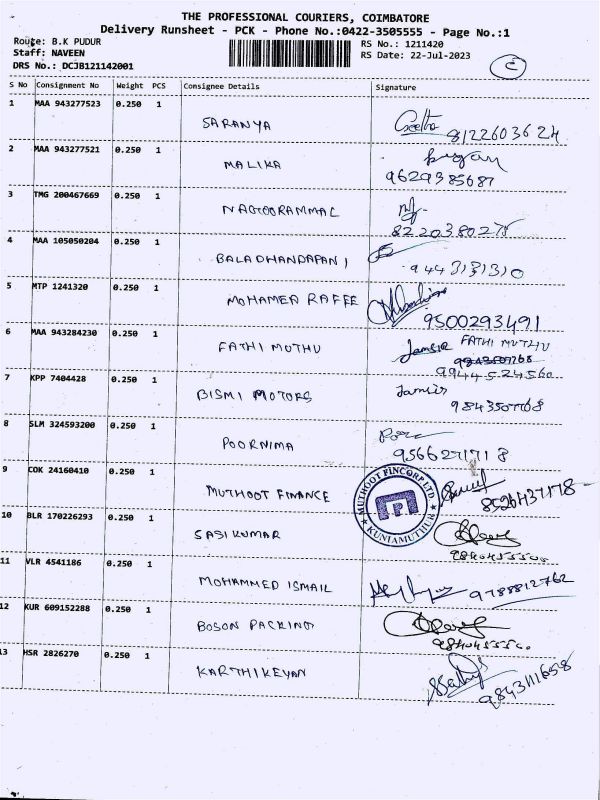 THE PROFESSIONAL COURIERS, COIMBATORE
Delivery Runsheet - PCK - Phone No.:0422-3505555 - Page No.:1
Route: B.K PUDUR
RS No.: 1211420
Staff: NAVEEN
RS Date: 22-Jul-2023
DRS No.: DCJB121142001
C
S No Consignment No Weight PCS Consignee Details Signature
1 MAA 943277523 0.250 1
SARANYA Geetha 8122603624
2 MAA 943277521 0.250 1
MALIKA 9629385687
3 TMG 200467669 0.250 1
NAGOORAMMAL
4 MAA 105050204 0.250 1
BALADHANDAPANI 9443131310
5 MTP 1241320 0.250 1
MOHAMED RAFFE 9500293491
6 MAA 943284230 0.250 1
FATHI MUTHU Jamsir FATHI MUTHU
9944524560
7 KPP 7404428 0.250 1
BISMI MOTORS Jamsir
9843507768
8 SLM 324593200 0.250 1
POORNIMA
9566271718
9 COK 24160410 0.250 1
MUTHOOT FINANCE 8526437178
MUTHOOT FINCORP LTD
KUNIAMUTHUR
10 BLR 170226293 0.250 1
SASIKUMAR
11 VLR 4541186 0.250 1
MOHAMMED ISMAIL 9788812762
12 KUR 609152288 0.250 1
BOSON PACKING
13 HSR 2826270 0.250 1
KARTHIKEYAN
9843111658